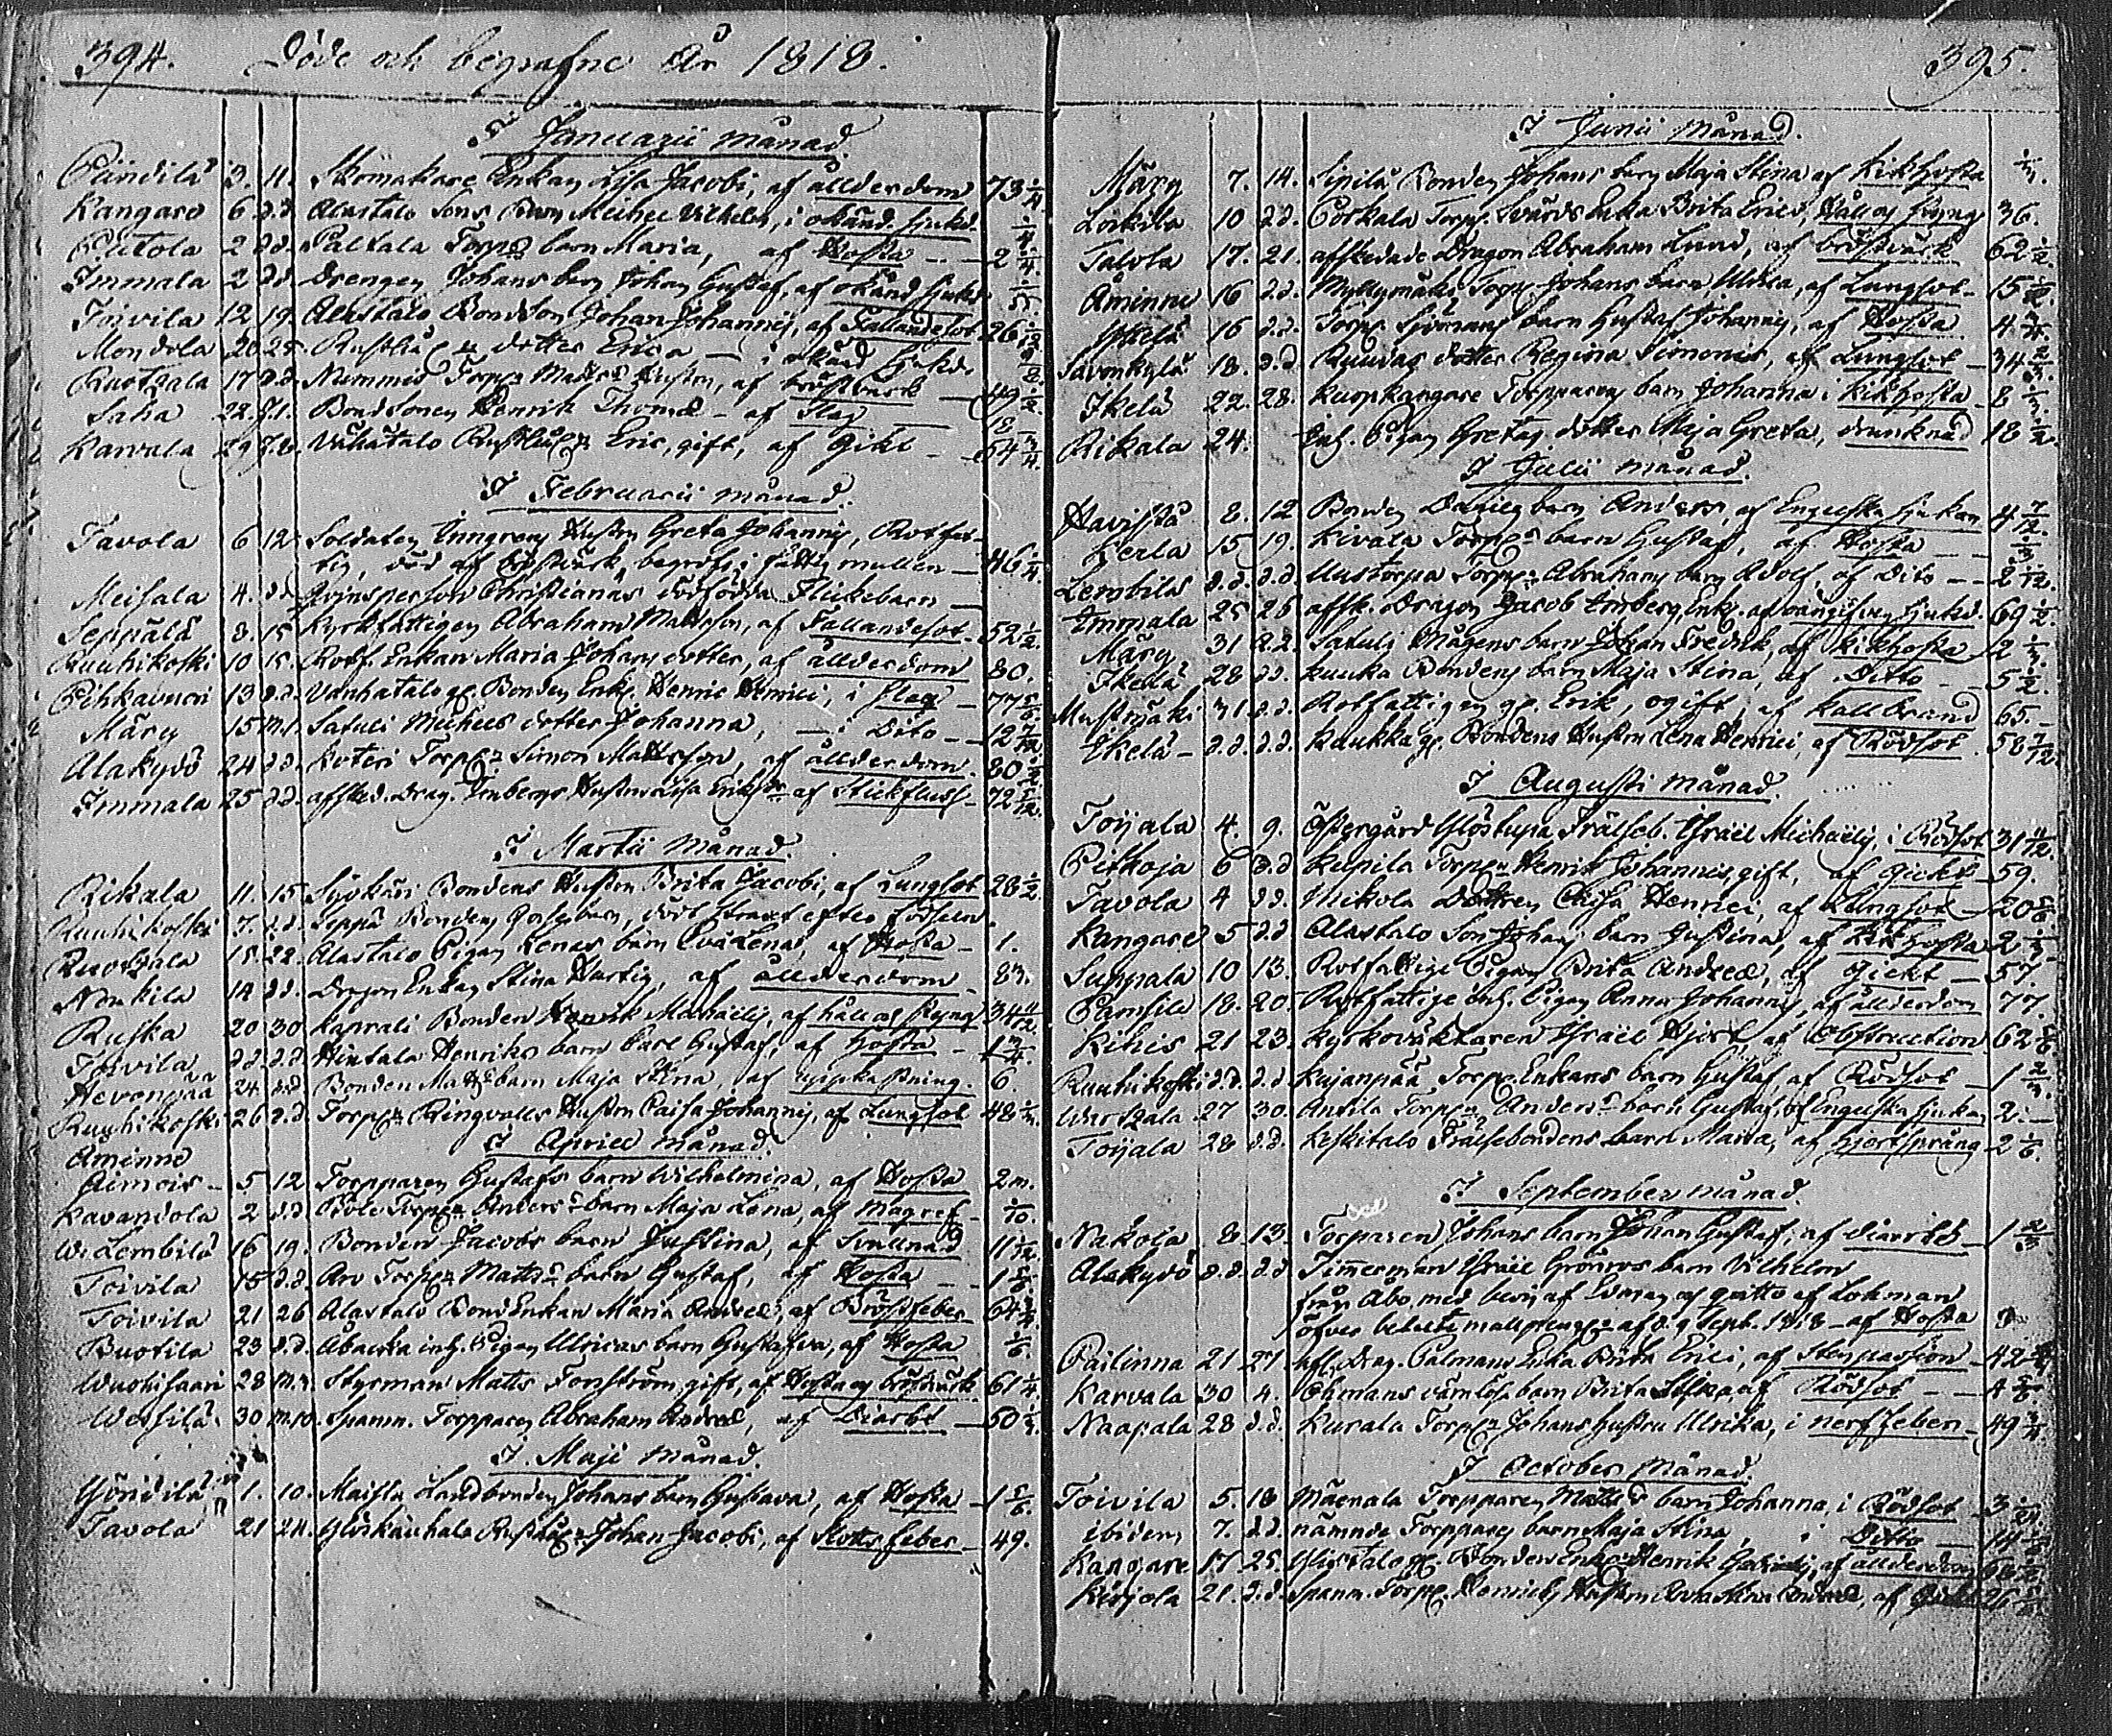 394. Döde och begrafne År 1818.
I Januarii månad.
3. 11. Skomakare Enkan Lisa Jacobi, af ållderdom 73 1/4
Kangare 6 d.d. Alastalo Sons Barn Michel Vilhelm, i okänd sjukd. 1/4
Pütola 2 d.d. Paltala Torp:s barn Maria, af Hosta 2 1/4.
Immala 2 d.d. Drengen Johans barn Johan Gustaf, af okänd sjukd.
Toivila 12 19 Alastalo Bondson Johan Johannis, af Fallandesot 26
Mondola 20 25. dotter Erica i okänd sjukd.
Ruotzala 17 d.d. Nummis Torp:n Matts Hustru, af bröstvärk 49 1/2.
Saha 22. Bondsonen Henrik Thomæ af Slag
Karvala 29 Vähätalo Eric, gift, af Gikt 54 3/4.
I Februarii månad.
Tavola 6 12 Soldaten Hustru Greta Johannis, Rotfat-
tig, död af bröstvärk, begrofs i fattig mullen 46 1/4.
Meisala 4. d.d. Qvinsperson Christianas dödfödda Flickebarn
Seppälä 8. 15 Kyrkfattigen Abraham Mattsson, af Fallandesot 52 1/2.
Ruuhikoski 10 15. Rotf. Enkan Maria Johans dotter, af ållderdom 80.
Pihkavuori 13 d.d. Vanhatalo gl. Bonden Enk. Henric Henrici, i slag 77 5/6.
Märy 15 Satuli Michels dotter Johanna, i Dito 12 7/12
Alakyrö 24 d.d. Koteri Torp:n Simon Mattsson, af ållderdom. 80 1/2
Immala 25 d.d. afsked. Drag. Imbergs Hustru Lisa af Stickfluss 72 5/12.
I Martii månad.
Rikala 11. 15. Syökäri Bondens Hustru Brita Jacobi, af Lungsot 28 1/2
Ruuhikoski 7. d.d. Seppä Bonden Gossebarn, dödt straxt efter födseln.
Ruotzala 15 22. Alastalo Pigan Lenas barn Eva Lena, af Hosta 1.
Nonkila 14 d.d. Dragon Enkan Stina Hartig, af ållderdom 83.
Ruska 20 30 Kaprali Bonden Henrik Michaelis, af håll og styng 34 11/12
Toivila d.d. d.d. Hintala Henriks barn Carl Gustaf, af Hosta 1 3/4.
Hevonpää 24 d.d Bonden Matts barn Maja Stina, af uppkastning. 6.
Ruuhikoski 26 d.d Torp:n Ringvalls Hustru Caisa Johannis, af Lungsot 48
I Aprill månad.
Aminne
Aimois 5 12 Torpparen Gustafs barn Wilhelmina, af Hosta 2 m.
Kavandola 2 d.d Torp:n Anders barn Maja Lena, af magref 1/10.
W. Lembilä 16 19. Bonden Jacobs barn Justina, af Svullnad 11 1/12.
Toivila 15 d.d. Aro Torp:n Matts barn Gustaf, af Hosta 1
Toivila 21 26 Alastalo Bond Enkan Maria Andreæ, af Bröstfeber 64 3/4
Buotila 23 d.d. Abacka inh. Pigan Ulricas barn Gustafva, af Hosta 1/6.
Wuohisaari 28 Styrman Matts Forsström, gift, af Hosta og bröstvärk 61 1/4.
30 m.10. Spann. Torpparen Abraham Andreæ, af Diarré 50
I Maji månad.
1. 10. Maisla Landbonden Johans barn Gustava, af Hosta 1 5/6.
Tavola 21 24. Yliskauhala Johan Jacobi, af Rötfeber 49.
395.
I Junii månad.
Märy 7. 14. Sipilä Bonden Johans barn Maja Stina af Kikhosta
10 d.d. Torp. Svärds Enka Brita Erici, Håll og styng 36.
Talola 17. 21. affskedade Dragon Abraham Lund, af bröstvärk 62 1/2.
Åminne 16 d.d. Myllymäki Torp. Johans barn, Ulrica, af Lungsot 15
Ikelä 16 d.d. Torp. Sjömans barn Gustaf Johannis, af Hosta 4 3/4.
Savonkylä 18. d.d dotter Regina Simonis, af Lungsot 34 2/3.
Ikelä 22. 28. Kuopkangare Torpparens barn Johanna i Kikhosta 8
Rikala 24. Inh. Pigan Gretas dotter Maja Greta, drunknad 18 1/2.
I Julii månad.
Havista 8. 12 Bonden barn Anders af Engelska sjukan 4 7/12.
Kerla 15 19. Kivala Torp:s barn Gustaf, af Hosta 1/3.
Lembilä d.d. d.d Uustorpa Torp:n Abrahams barn Adolf, af Dito 2 1/12.
Immala 25 26 affsk. Dragon Jacob Imberg, Enk. af sjukd. 69 1/2.
Märy 31 Satuli Mågens barn Johan Fredrik, af kikhosta 2
Ikelä 28 d.d. Kuuka Bondens barn Maja Stina, af Ditto 5 1/2.
Mustmäki 31 d.d. Rotfattigen gl. Erik, ogift, af Kallbrand 65.
Ikelä d.d. d.d. Kuukka gl. Bondens Hustru Lena Henrici, af Rödsot 58 7/12.
I Augusti månad.
Toijala 4. 9. Östergård Ylöstupa Frälseb. Israël Michaëlis, i Rödsot 31 11/12.
Petkoja 6 d.d Kelpila Torp:n Henrik Johannis, gift, af gickt 59.
Tavola 4 d.d Nikola Dottren Caisa Henrici, af Lungsot 20 5/6.
Kangare 5 d.d Alastalo Son Johans barn Justina, af Kikhosta 2 1/3
Suppala 10 13. Rotfattige Pigan Brita Andreæ, af gickt 57.
Pamfile 18. 20. Rotfattige inh. Pigan Anna Johannis, af ållderdom 77.
Kihis 21 23. Kyrkoväktaren Israël Hjort af Obstruction 62 5/6.
Ruuhikoski d.d. d.d Kujanpää Torp. Enkans barn Gustaf, af Rödsot 1 2/3.
27 30. Antila Torp:n Anders barn Gustaf, af Engelska sjukan 2.
Toijala 28 d.d. Keskitalo Frälsebondens barn Maria, af Hjertsprång 2 1/6.
I September månad.
Nakola 8. 13. Torparen Johans barn Johan Gustaf, af Diarrhé 1 2/3
Alakyrö d.d. d.d Timerman Israël Grönros barn Vilhelm
från Åbo, med bevis af Edman og qvitto af Lohman
öfver af d. 9 Sept. 1818 af Hosta
Pailinna 21 27. afsk. Drag. Palmans Enka Brita Erici, af Stenpassion 42
Karvala 30 4. Öhmans barn Brita Stina, af Rödsot 4
Naapala 28 d.d. Kurala Torp:n Johans hustru Ulrika, i nerffeber 49 3/4
I October månad.
Toivila 5. 18 Mäenala Torpparen Matts barn Johanna, i Rödsot 3
ibidem 7. d.d. nämnde Torpparens barn Maja Stina, i Ditto
Kangare 17 25. Ylistalo gl. Bonden Enk. Henrik af ållderdom
Kirjola 21. d.d. Spann. Torp. Henrichs Hustru af Gickt 26